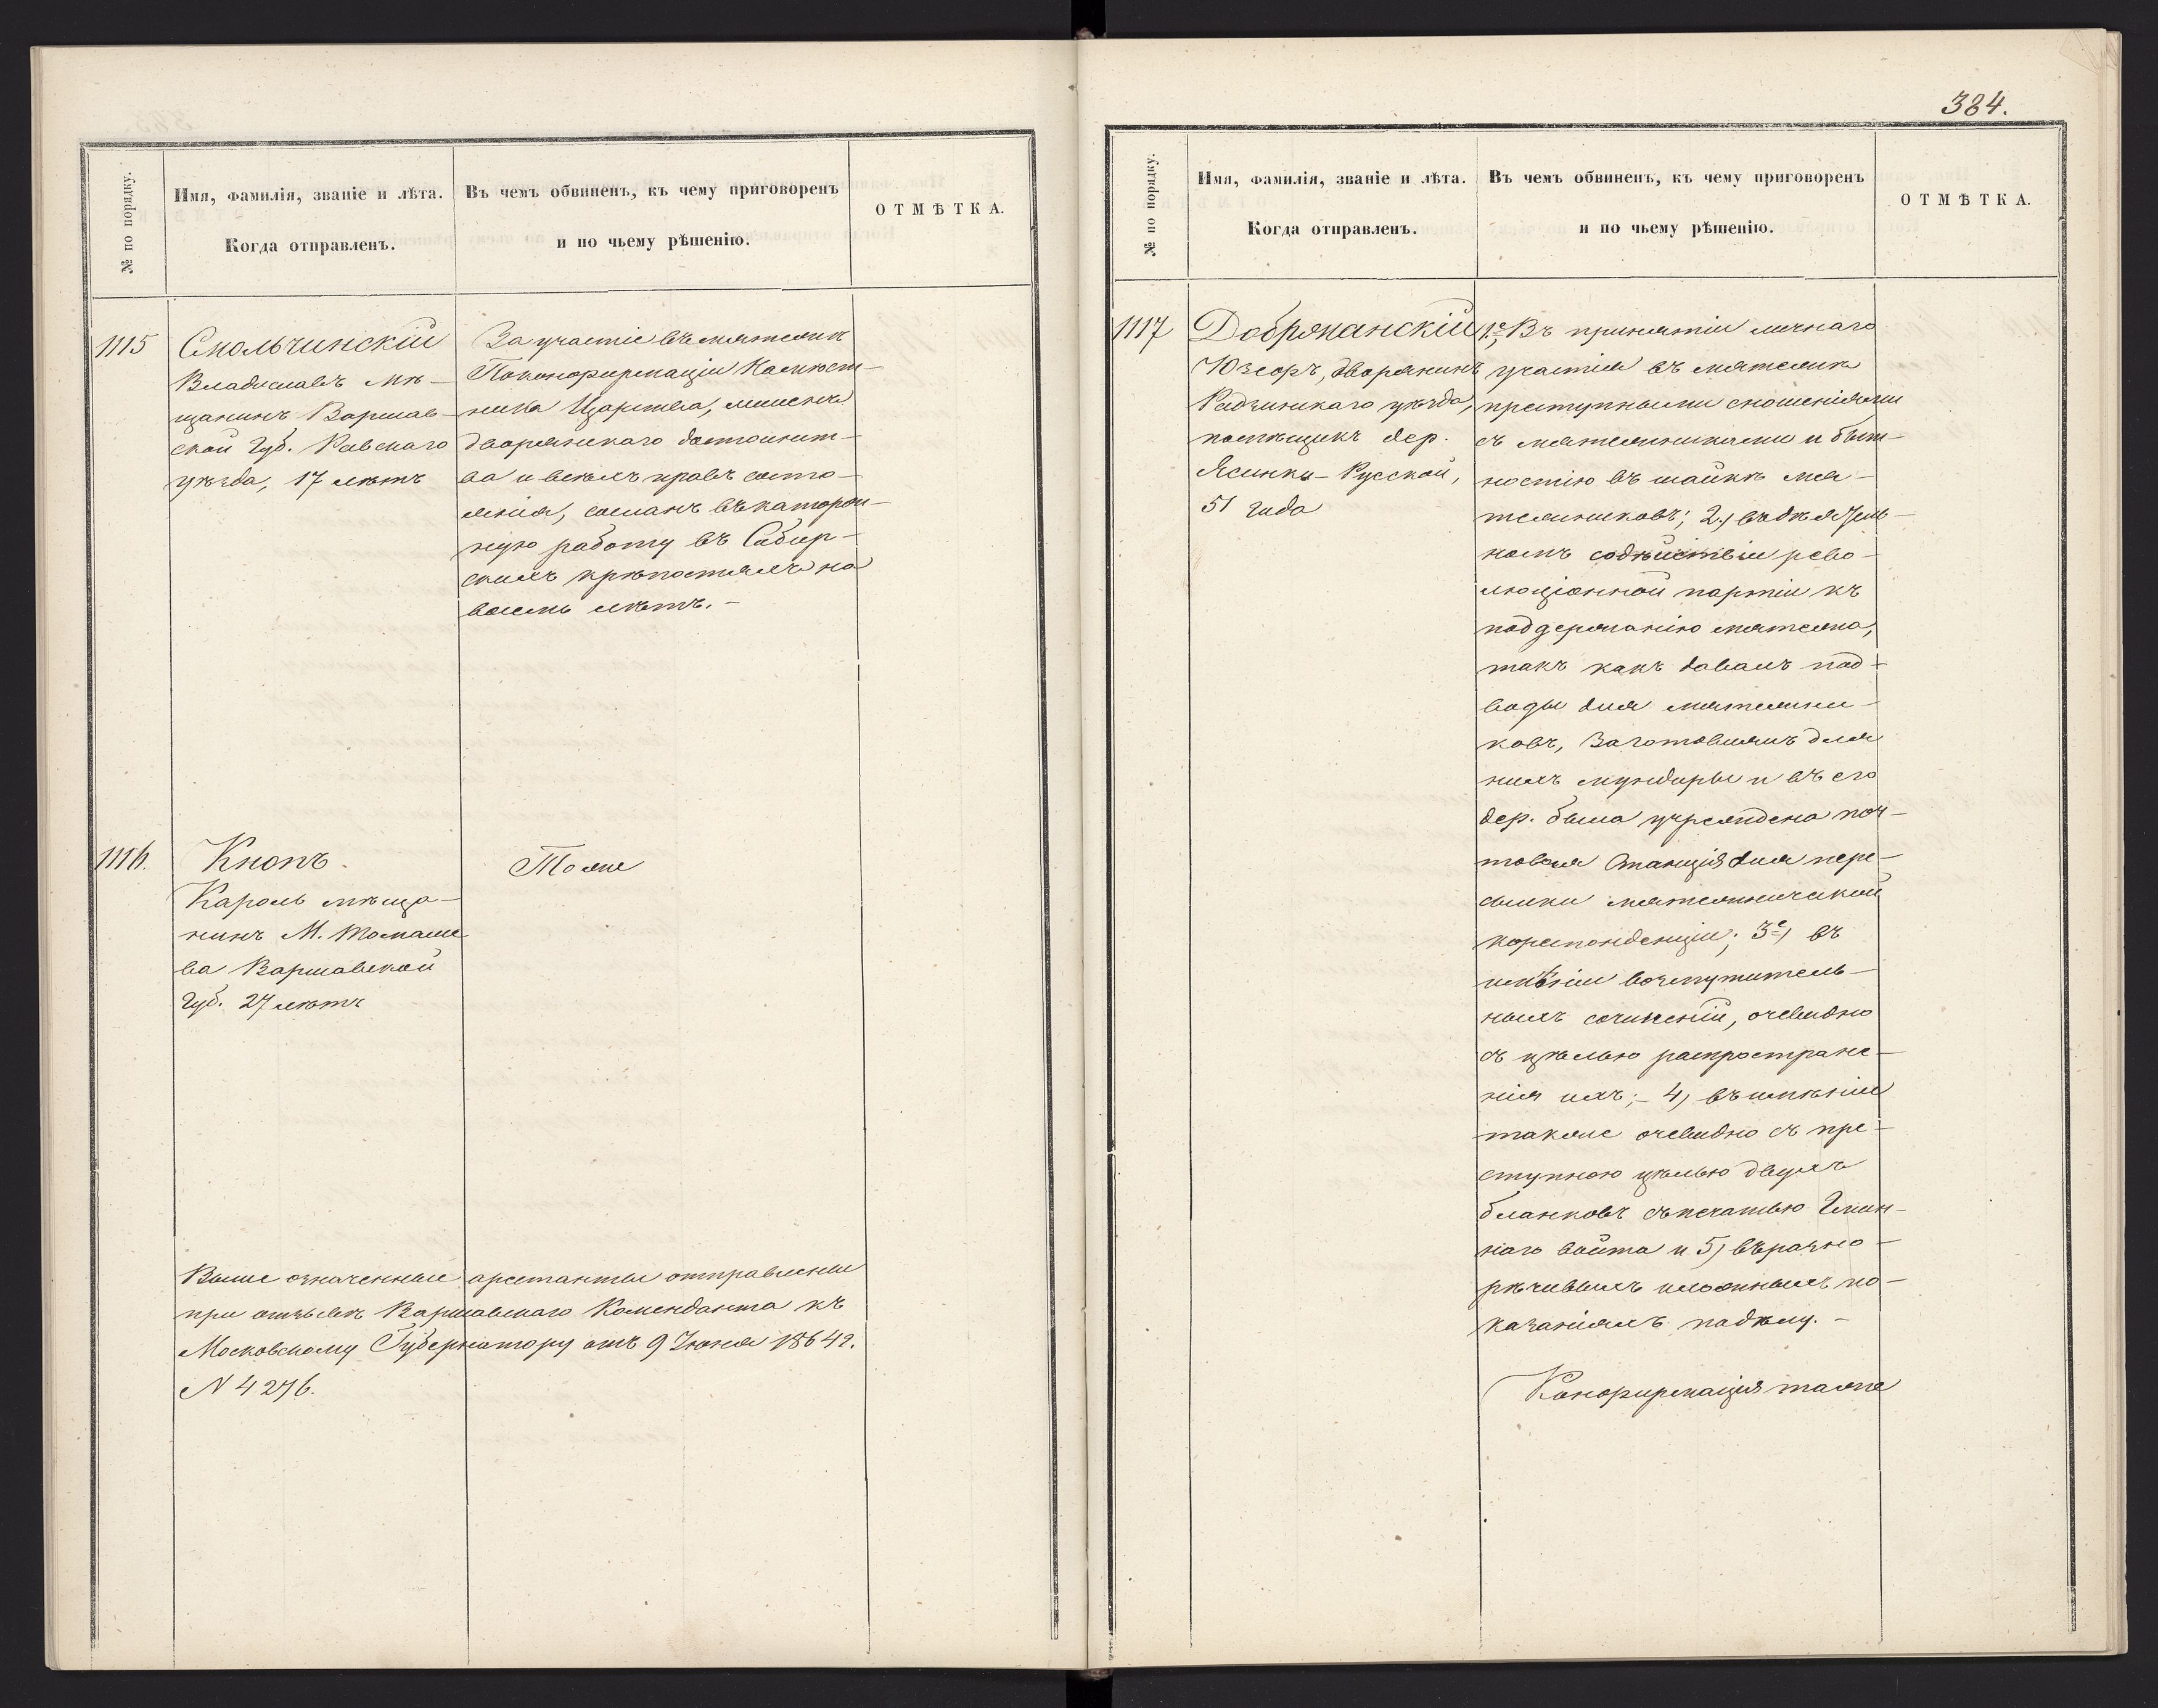 384.
№ по порядку.
Имя, фамилія, званіе и лѣта.
Когда отправленъ.
Въ чемъ обвиненъ, къ чему приговоренъ
и по чьему рѣшенію.
ОТМѢТКА.
1115
Смольчинскій
Владиславъ мѣ-
щанинъ Варшав-
ской Губ. Равскаго
уѣзда, 17 лѣтъ
За участіе въ мятежѣ
По конфирмаціи Намѣст-
ника Царства, лишенъ
дворянскаго достоинст-
ва и всѣхъ правъ состо-
янія, сосланъ въ каторж-
ную работу въ Сибир-
скихъ крѣпостяхъ на
восемь лѣтъ.-
1116.
Кнопъ.
Кароль мѣща-
нинъ М. Томаше
ва Варшавской
Губ. 27 лѣтъ
Тоже
Выше означенные арестанты отправлены
при отзывѣ Варшавскаго Коменданта къ
Московскому Губернатору отъ 9 Іюня 1864 г.
N 4276.
№ по порядку.
Имя, фамилія, званіе и лѣта.
Когда отправленъ.
Въ чемъ обвиненъ, къ чему приговоренъ
и по чьему рѣшенію.
ОТМѢТКА.
1117
Добржанскій
Юзефъ, дворянинъ
Радзинскаго уѣзда,
помѣщикъ дер.
Ясинки-Русской,
51 года
1.е, Въ принятіи личнаго
участія въ мятежѣ
преступными сношеніями
съ мятежниками и быт-
ностію въ шайкѣ мя-
тежниковъ; 2.) въ дѣятель-
номъ содѣйствіи рево-
люціонной партіи къ
поддержанію мятежа,
такъ какъ давалъ под-
воды для мятежни-
ковъ, заготовлялъ для
нихъ мундиры и въ его
дер. была учреждена поч-
товая Станція для пере-
сылки мятежнической
кореспонденціи; 3е) въ
имѣніи возмутитель-
ныхъ сочиненій, очевидно
съ цѣлью распростране-
нія ихъ;- 4) въ имѣніи
также очевидно съ пре-
ступною цѣлью двухъ
бланковъ съ печатью Гмин-
наго войта и 5) въ разно-
рѣчивыхъ и ложныхъ по-
казаніяхъ по дѣлу.-
Конфирмація таже